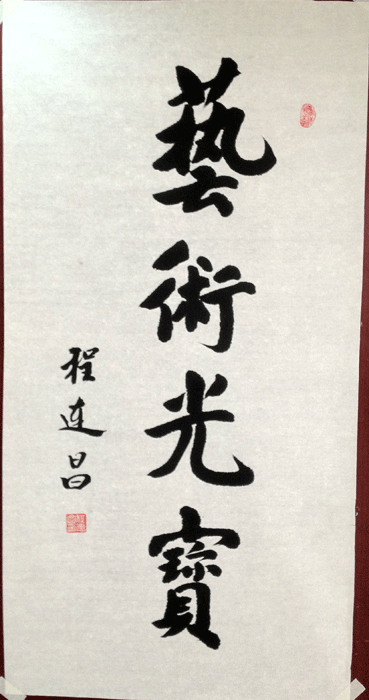 藝術光寶
程连昌